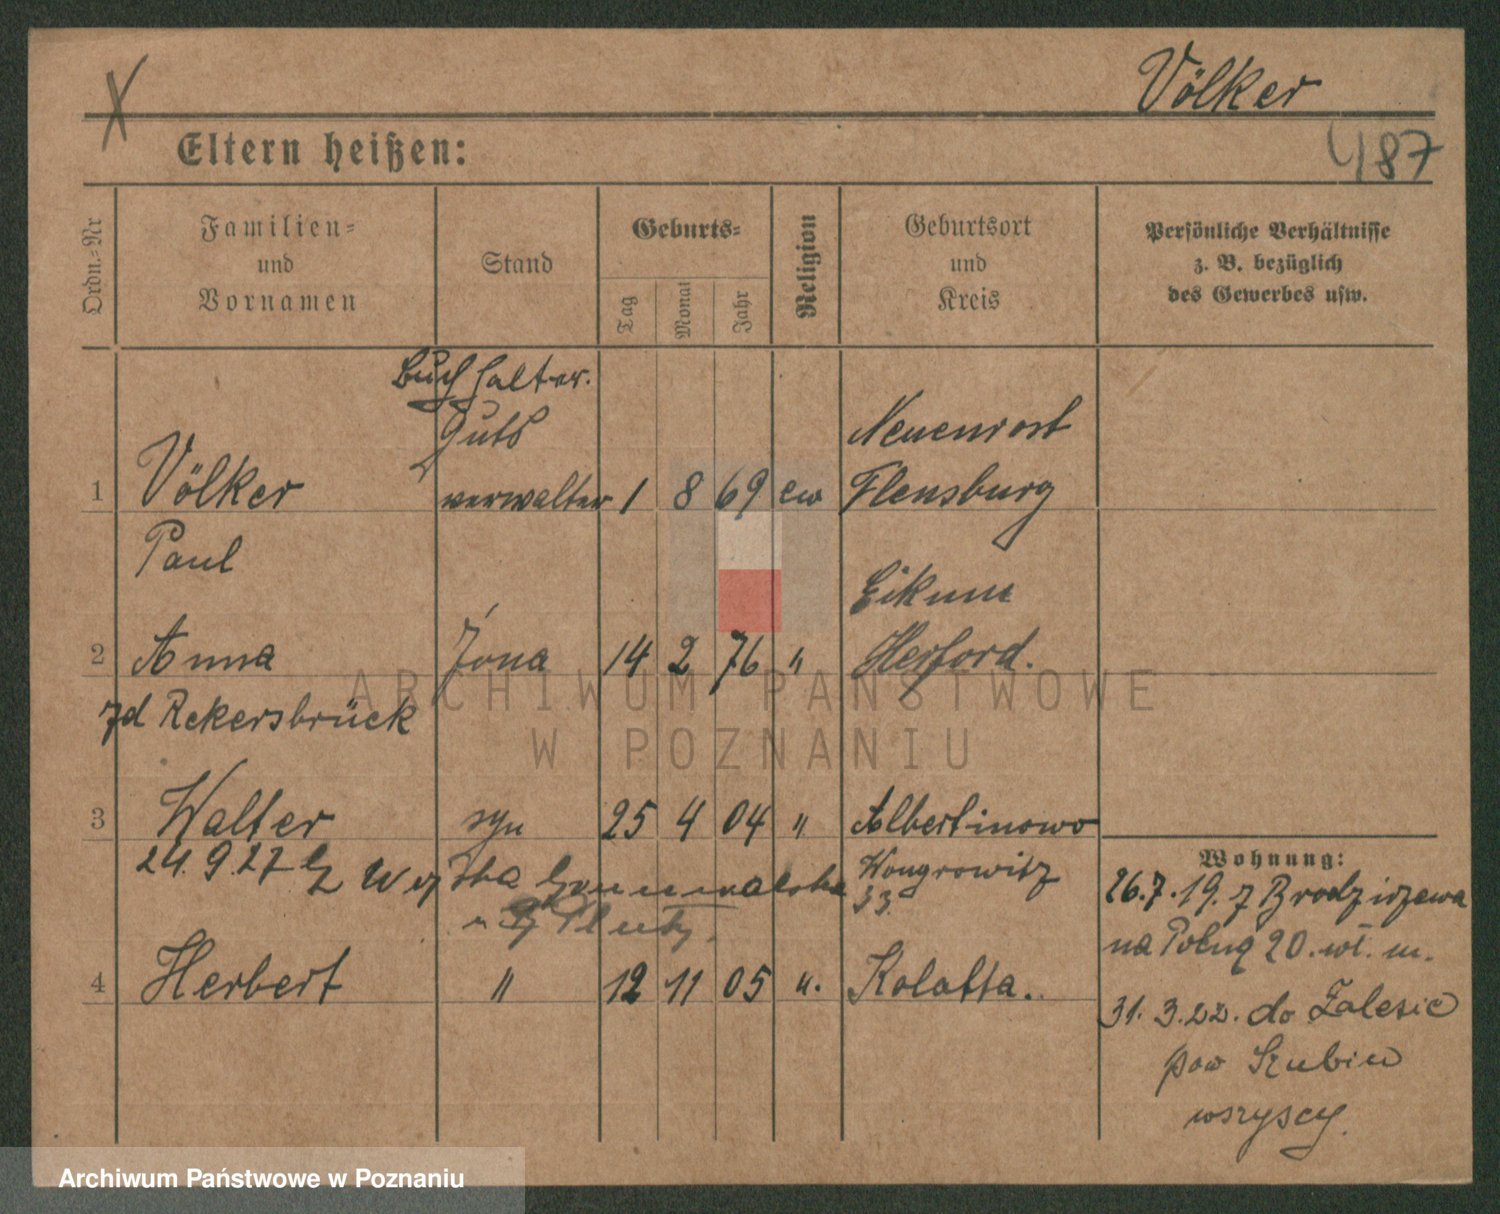 Völker
487
Eltern heißen:
Ordn.-Nr
Familien-
und
Vornamen
Stand
Geburts-
Tag
Monat
Jahr
Religion
Geburtsort
und
Kreis
Persönliche Verhältnisse
z. B. bezüglich
des Gewerbes usw.
Buchhalter.
Guts
1 Völker verwalter 1 8 69 ew
Flensburg
Paul
Eikum
2 Anna żona 14 2 76 " Herford.
zd Rekersbrück
3 Walter syn 25 4 04 " Albertinowo
24.9.27
Wongrowitz
4 Herbert " 12 11 05 ". Kolatta.
Wohnung:
26.7.19. z Brodziszewa
na 20. wł. m.
31.3.22. do Zalesie
pow Szubin
wszyscy.
ARCHIWUM PAŃSTWOWE
W POZNANIU
Archiwum Państwowe w Poznaniu